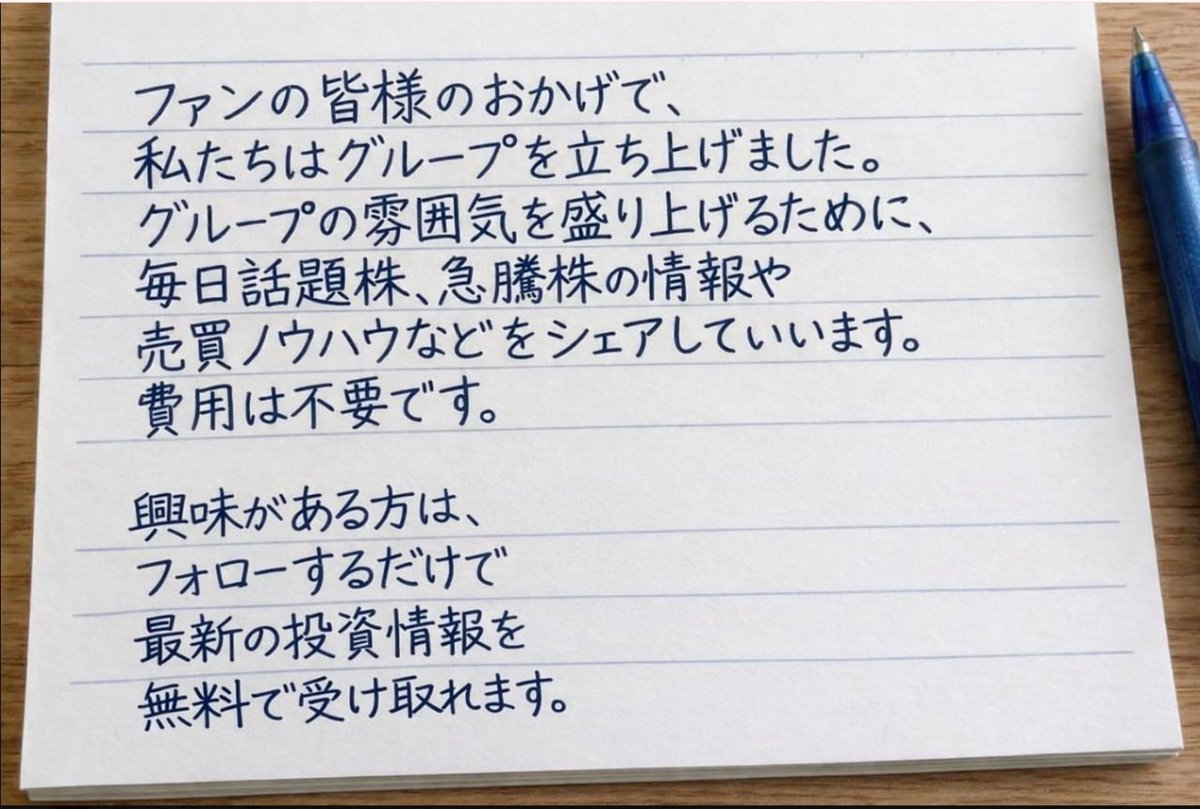 ファンの皆様のおかげで、
私たちはグループを立ち上げました。
グループの雰囲気を盛り上げるために、
毎日話題株、急騰株の情報や
売買ノウハウなどをシェアしていいます。
費用は不要です。
興味がある方は、
フォローするだけで
最新の投資情報を
無料で受け取れます。